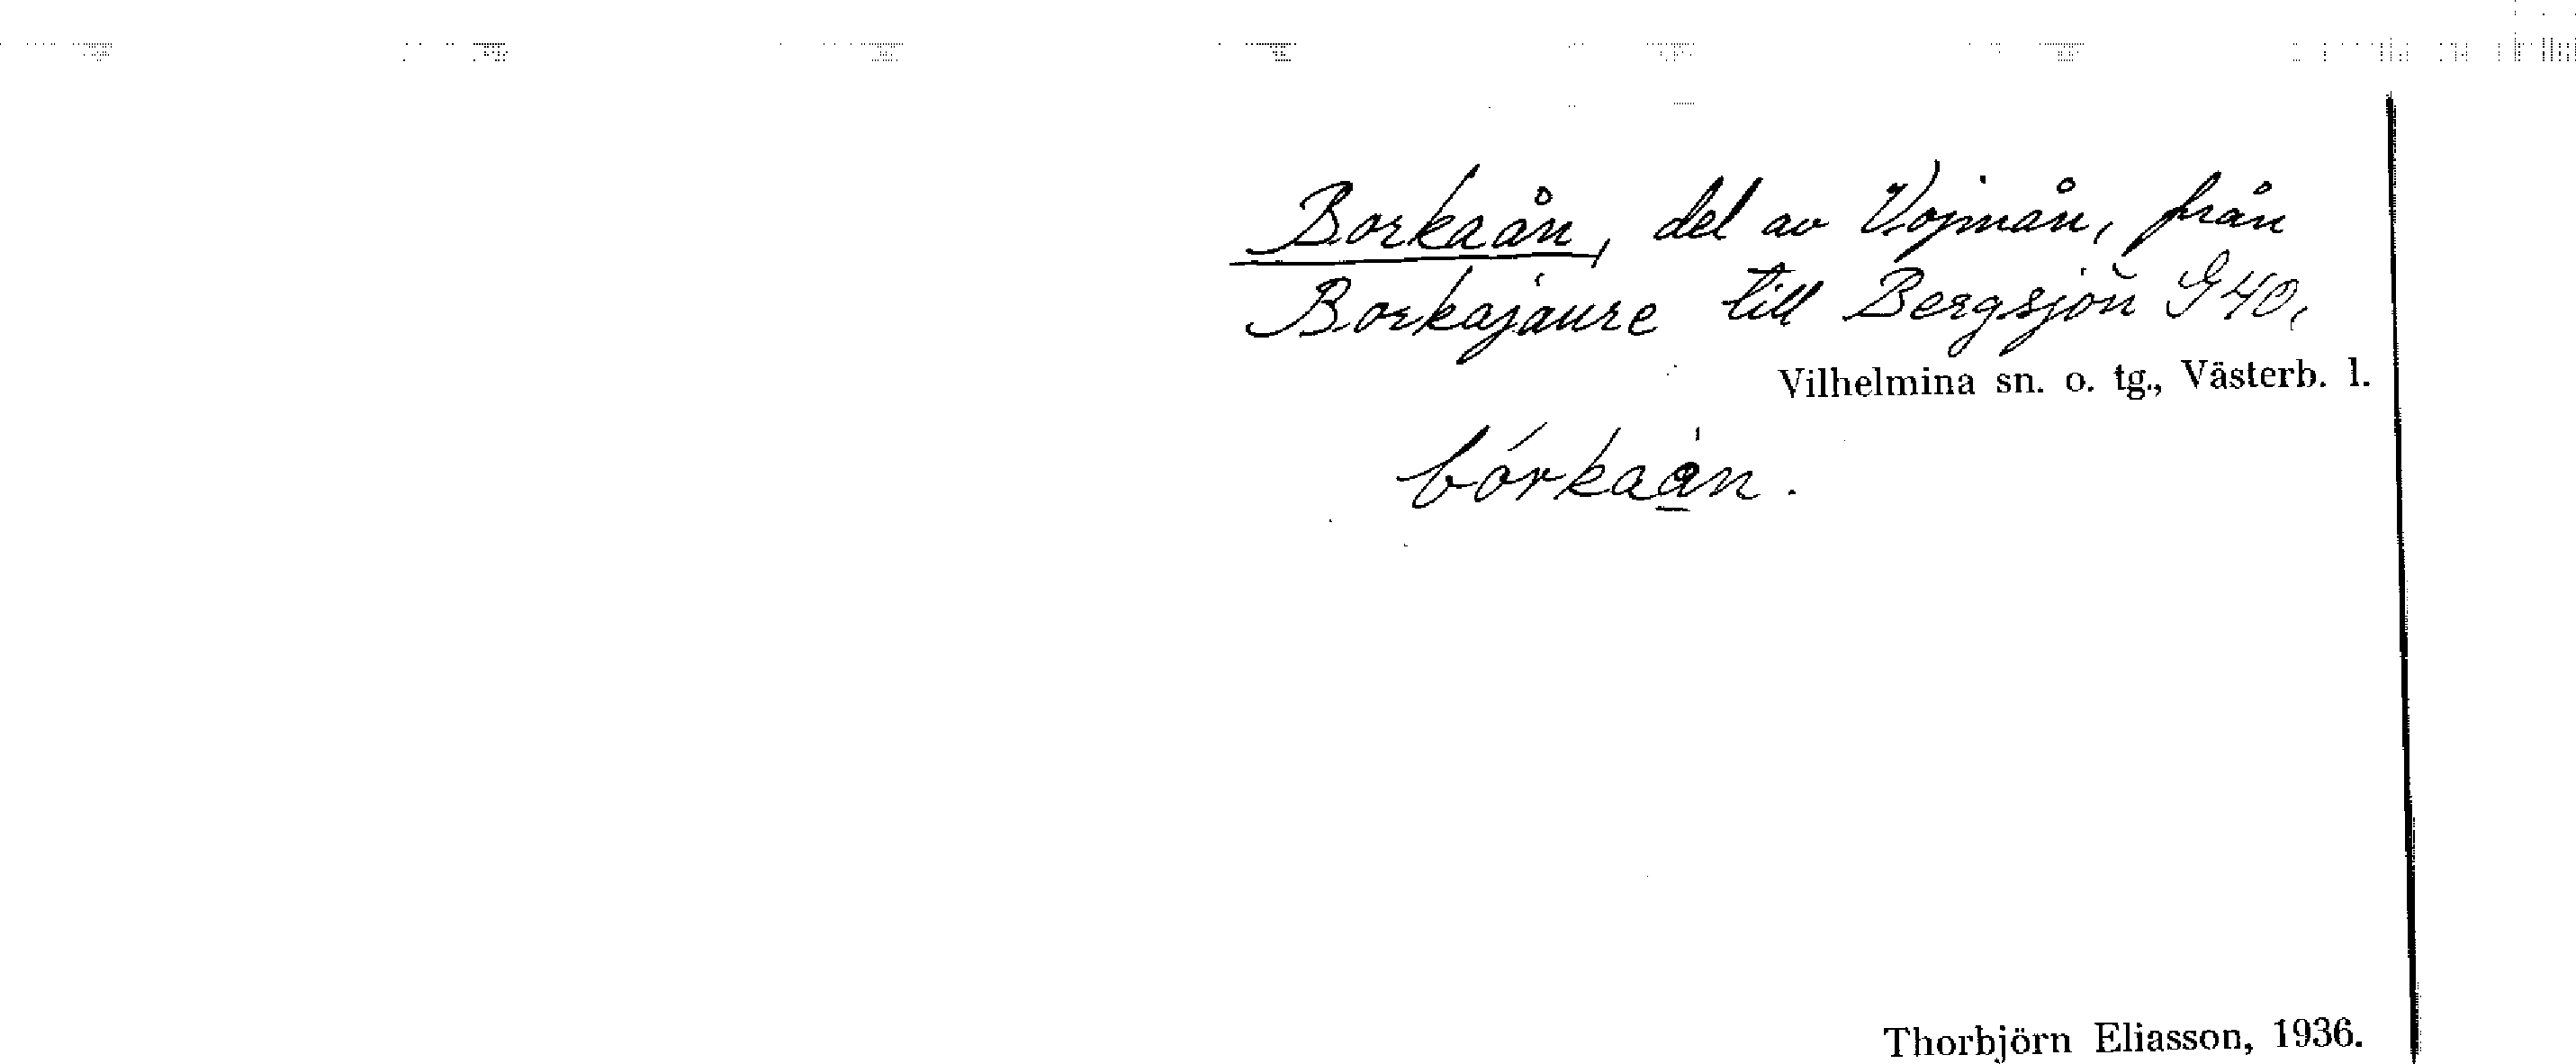 Borkaån, del av Vojmån, från
Borkajaure till Bergsjön G40,
Vilhelmina sn. o. tg., Västerb. l.
bórkaàn.
Thorbjörn Eliasson, 1936.